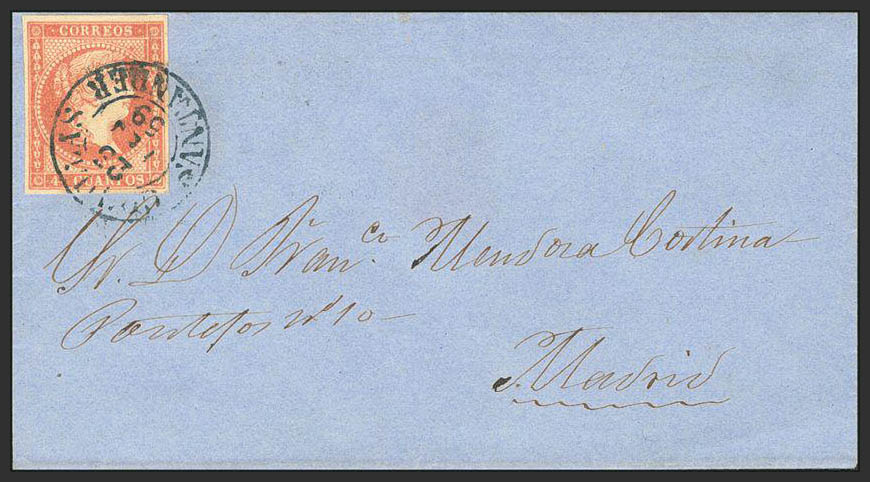 CORREOS
SANTANDER
59
4 CUARTOS
Sr. D. Franco. Mendoza Cortina
Pontejos no. 10
Madrid